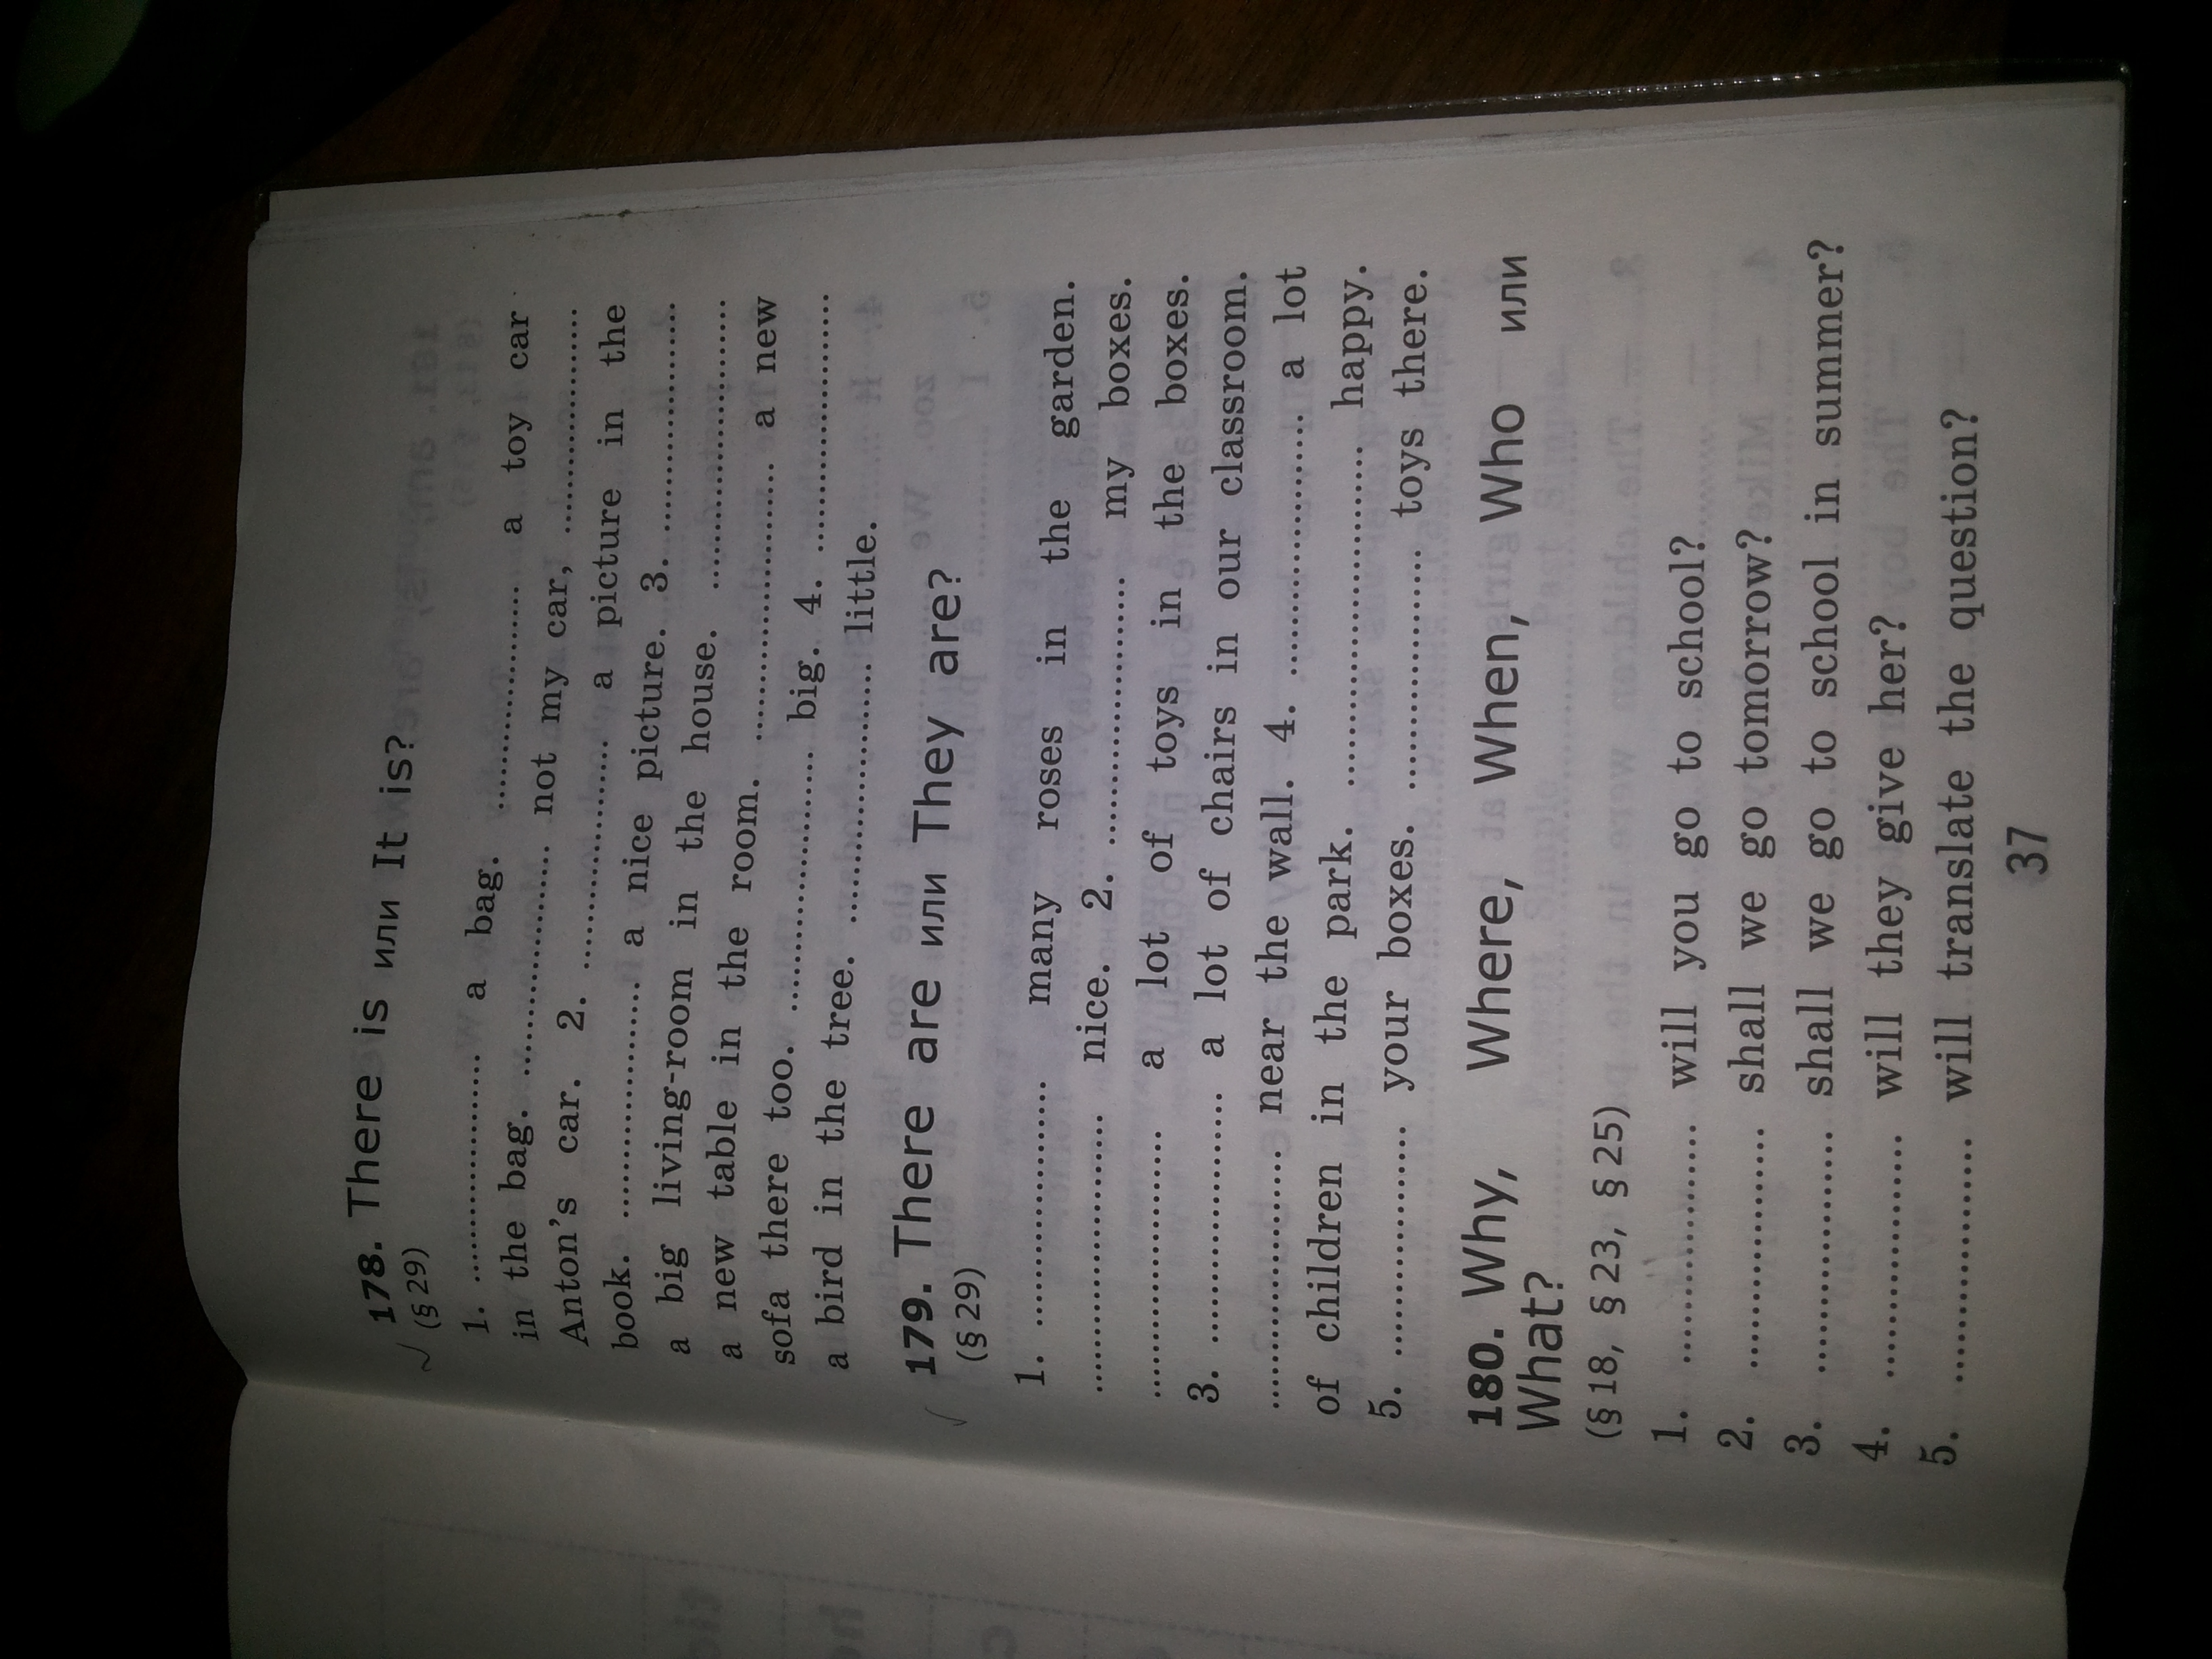 178. There is или It is?
(§ 29)
1. ........................ a bag. ........................ a toy car
in the bag. ........................ not my car, ........................
Anton's car. 2. ........................ a picture in the
book. ........................ a nice picture. 3. ........................
a big living-room in the house. ........................
a new table in the room. ........................ a new
sofa there too. ........................ big. 4. ........................
a bird in the tree. ........................ little.
179. There are или They are?
(§ 29)
1. ........................ many roses in the garden.
........................ nice. 2. ........................ my boxes.
........................ a lot of toys in the boxes.
3. ........................ a lot of chairs in our classroom.
........................ near the wall. 4. ........................ a lot
of children in the park. ........................ happy.
5. ........................ your boxes. ........................ toys there.
180. Why, Where, When, Who или
What?
(§ 18, § 23, § 25)
1. ........................ will you go to school?
2. ........................ shall we go tomorrow?
3. ........................ shall we go to school in summer?
4. ........................ will they give her?
5. ........................ will translate the question?
37